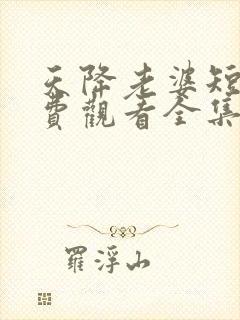 天降老婆短
費觀看全集
羅浮山